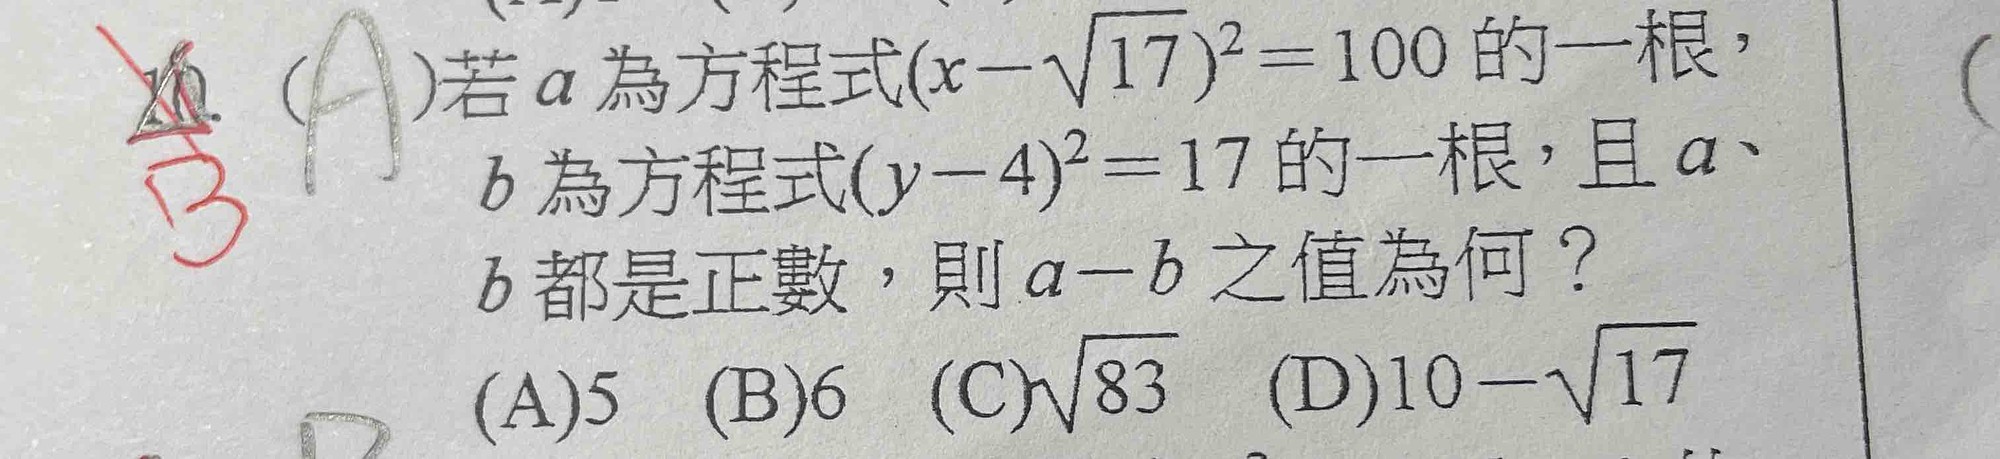 10. (A)若 a 為方程式(x－√17)²＝100 的一根，
B
b 為方程式(y－4)²＝17 的一根，且 a、
b 都是正數，則 a－b 之值為何？
(A)5 (B)6 (C)√83 (D)10－√17